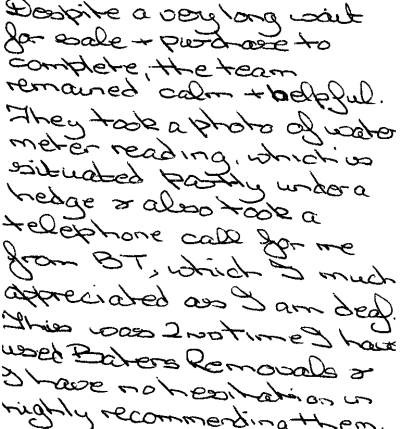 Despite a very long wait
for sale + purchase to
complete, the team
remained calm + helpful.
They took a photo of water
meter reading, which is
situated partly under a
hedge & also took a
telephone call for me
from BT, which I much
appreciated as I am deaf.
This was 2nd time I have
used Baters Removals &
I have no hesitation in
highly recommending them.